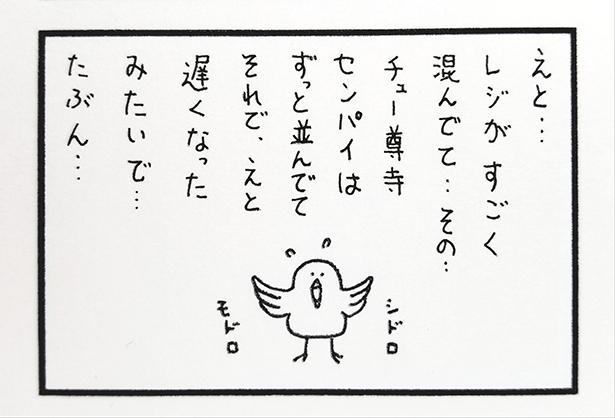 えと…
レジがすごく
混んでて…その…
チュー尊寺
センパイは
ずっと並んでて
それで、えと
遅くなった
みたいで…
たぶん…
シドロ
モドロ